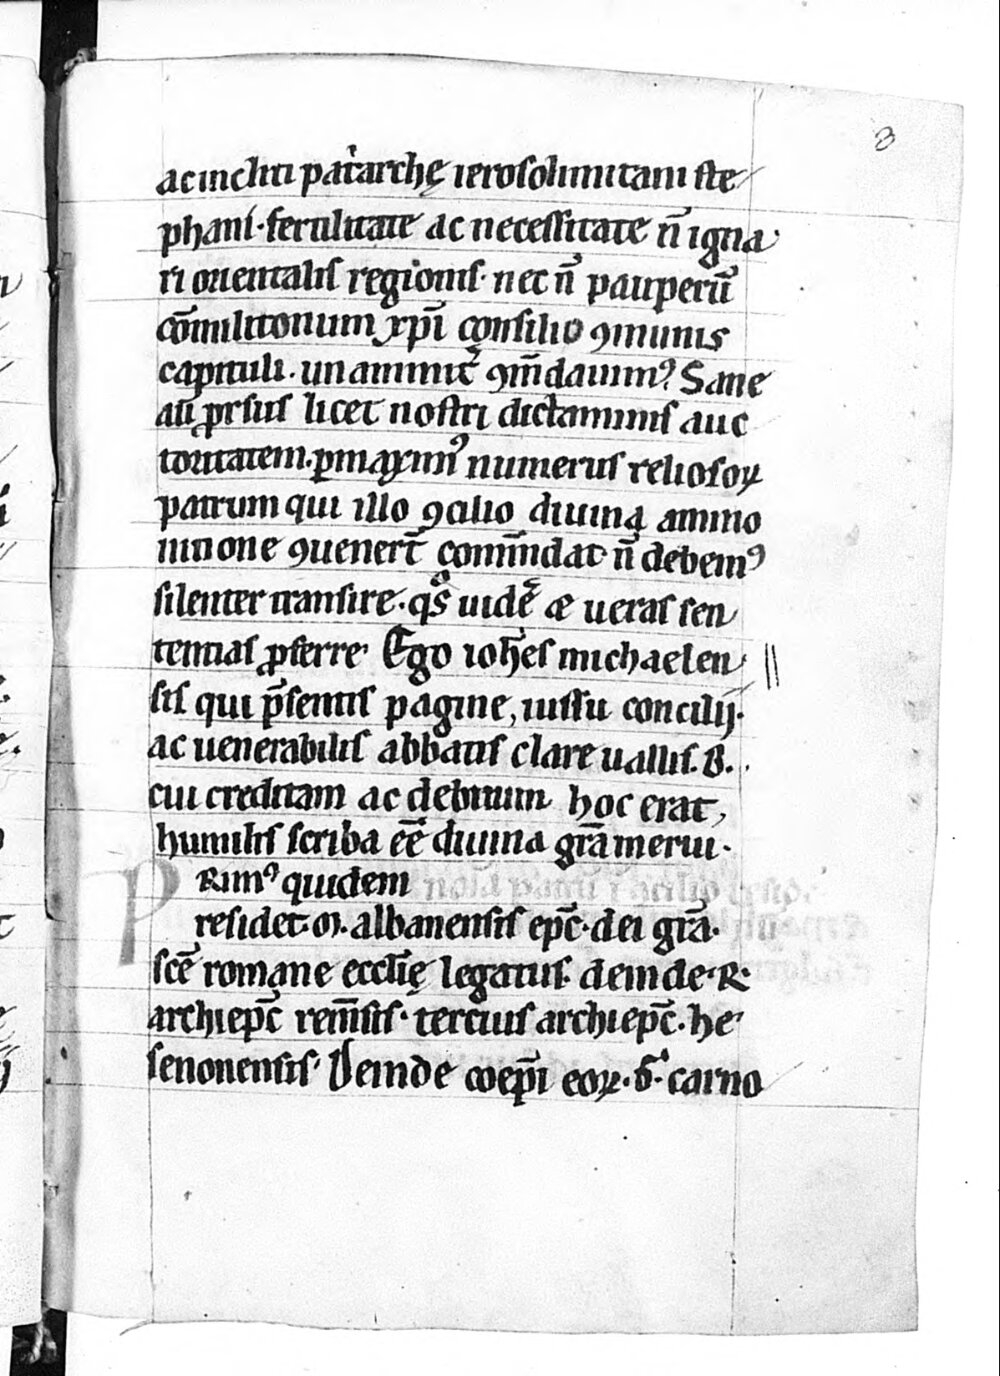 3
ac incliti pat̾archę ierosolimitani ste
phani· fertilitate ac necessitate n̄ igna
ri orientalis regionis· nec n̄ pauperū
cōmilitonum xp̄i consilio ꝯmunis
capituli· unanimit̾ ꝯm̄dauimꝰ Sane
aū ꝓrsus licet nostri dictaminis auc
toritatem· ꝑmaximꝰ numerus reliosoꝝ
patrum qui illo ꝯcilio diuina ammo
nitione ꝯuenert̄ com̄mdat n̄ debemꝰ
silenter transire· qͦs uidē æ ueras sen
tentias ꝓferre· Ego ioh̄es michaelen
sis qui p̄sentis pagine, iussu concilij·
ac uenerabilis abbatis clare uallis· B·
cui creditam ac debitum hoc erat,
humilis scriba eē diuina grā merui·
PRimꝰ quidem
residet· M· albanensis ep̄c· dei grā·
scē romane eccl̄ię legatus· deinde· R·
archiep̄c rem̄sis· tercius archiep̄c· he·
senonensis· Deinde coep̄i eoꝝ· G· carno